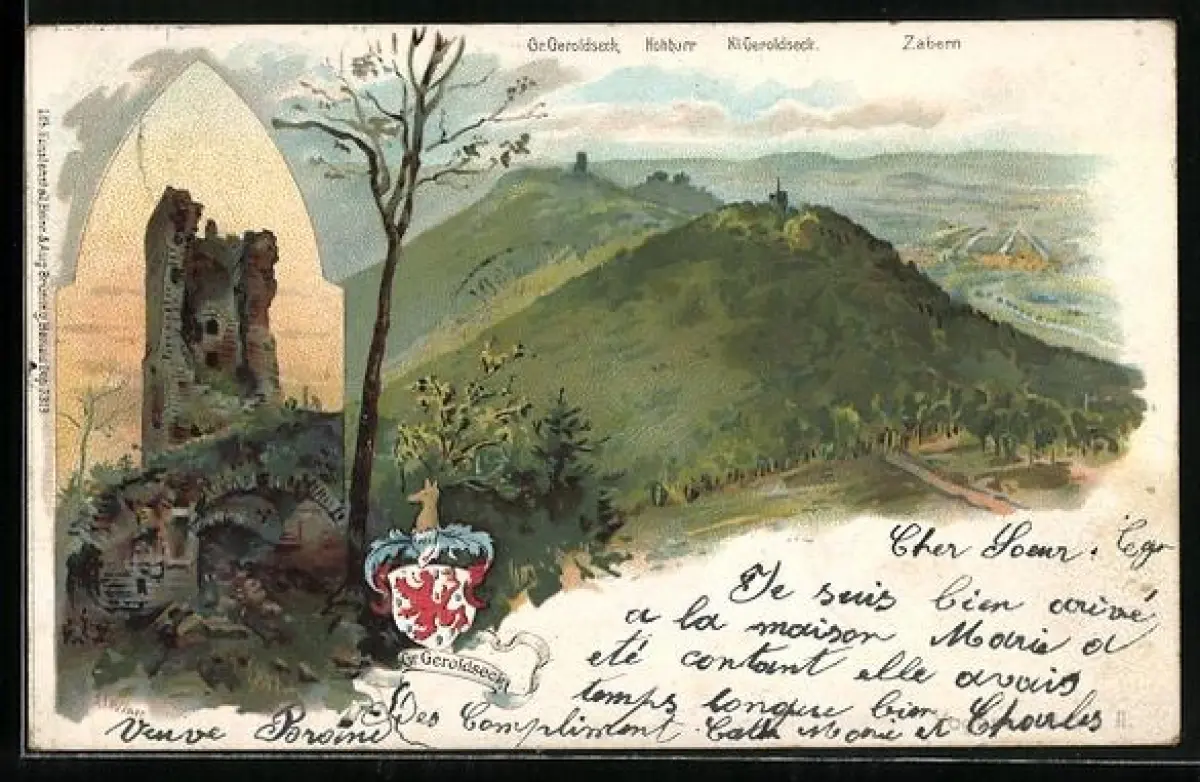 Gr. Geroldseck Hohbarr Kl. Geroldseck. Zabern
Gr. Geroldseck
Cher Soeur.
Je suis bien arivé
a la maison Marie a
eté contant elle avais
temps longue bien
Veuve Des Compliment Cath Marie et Charles